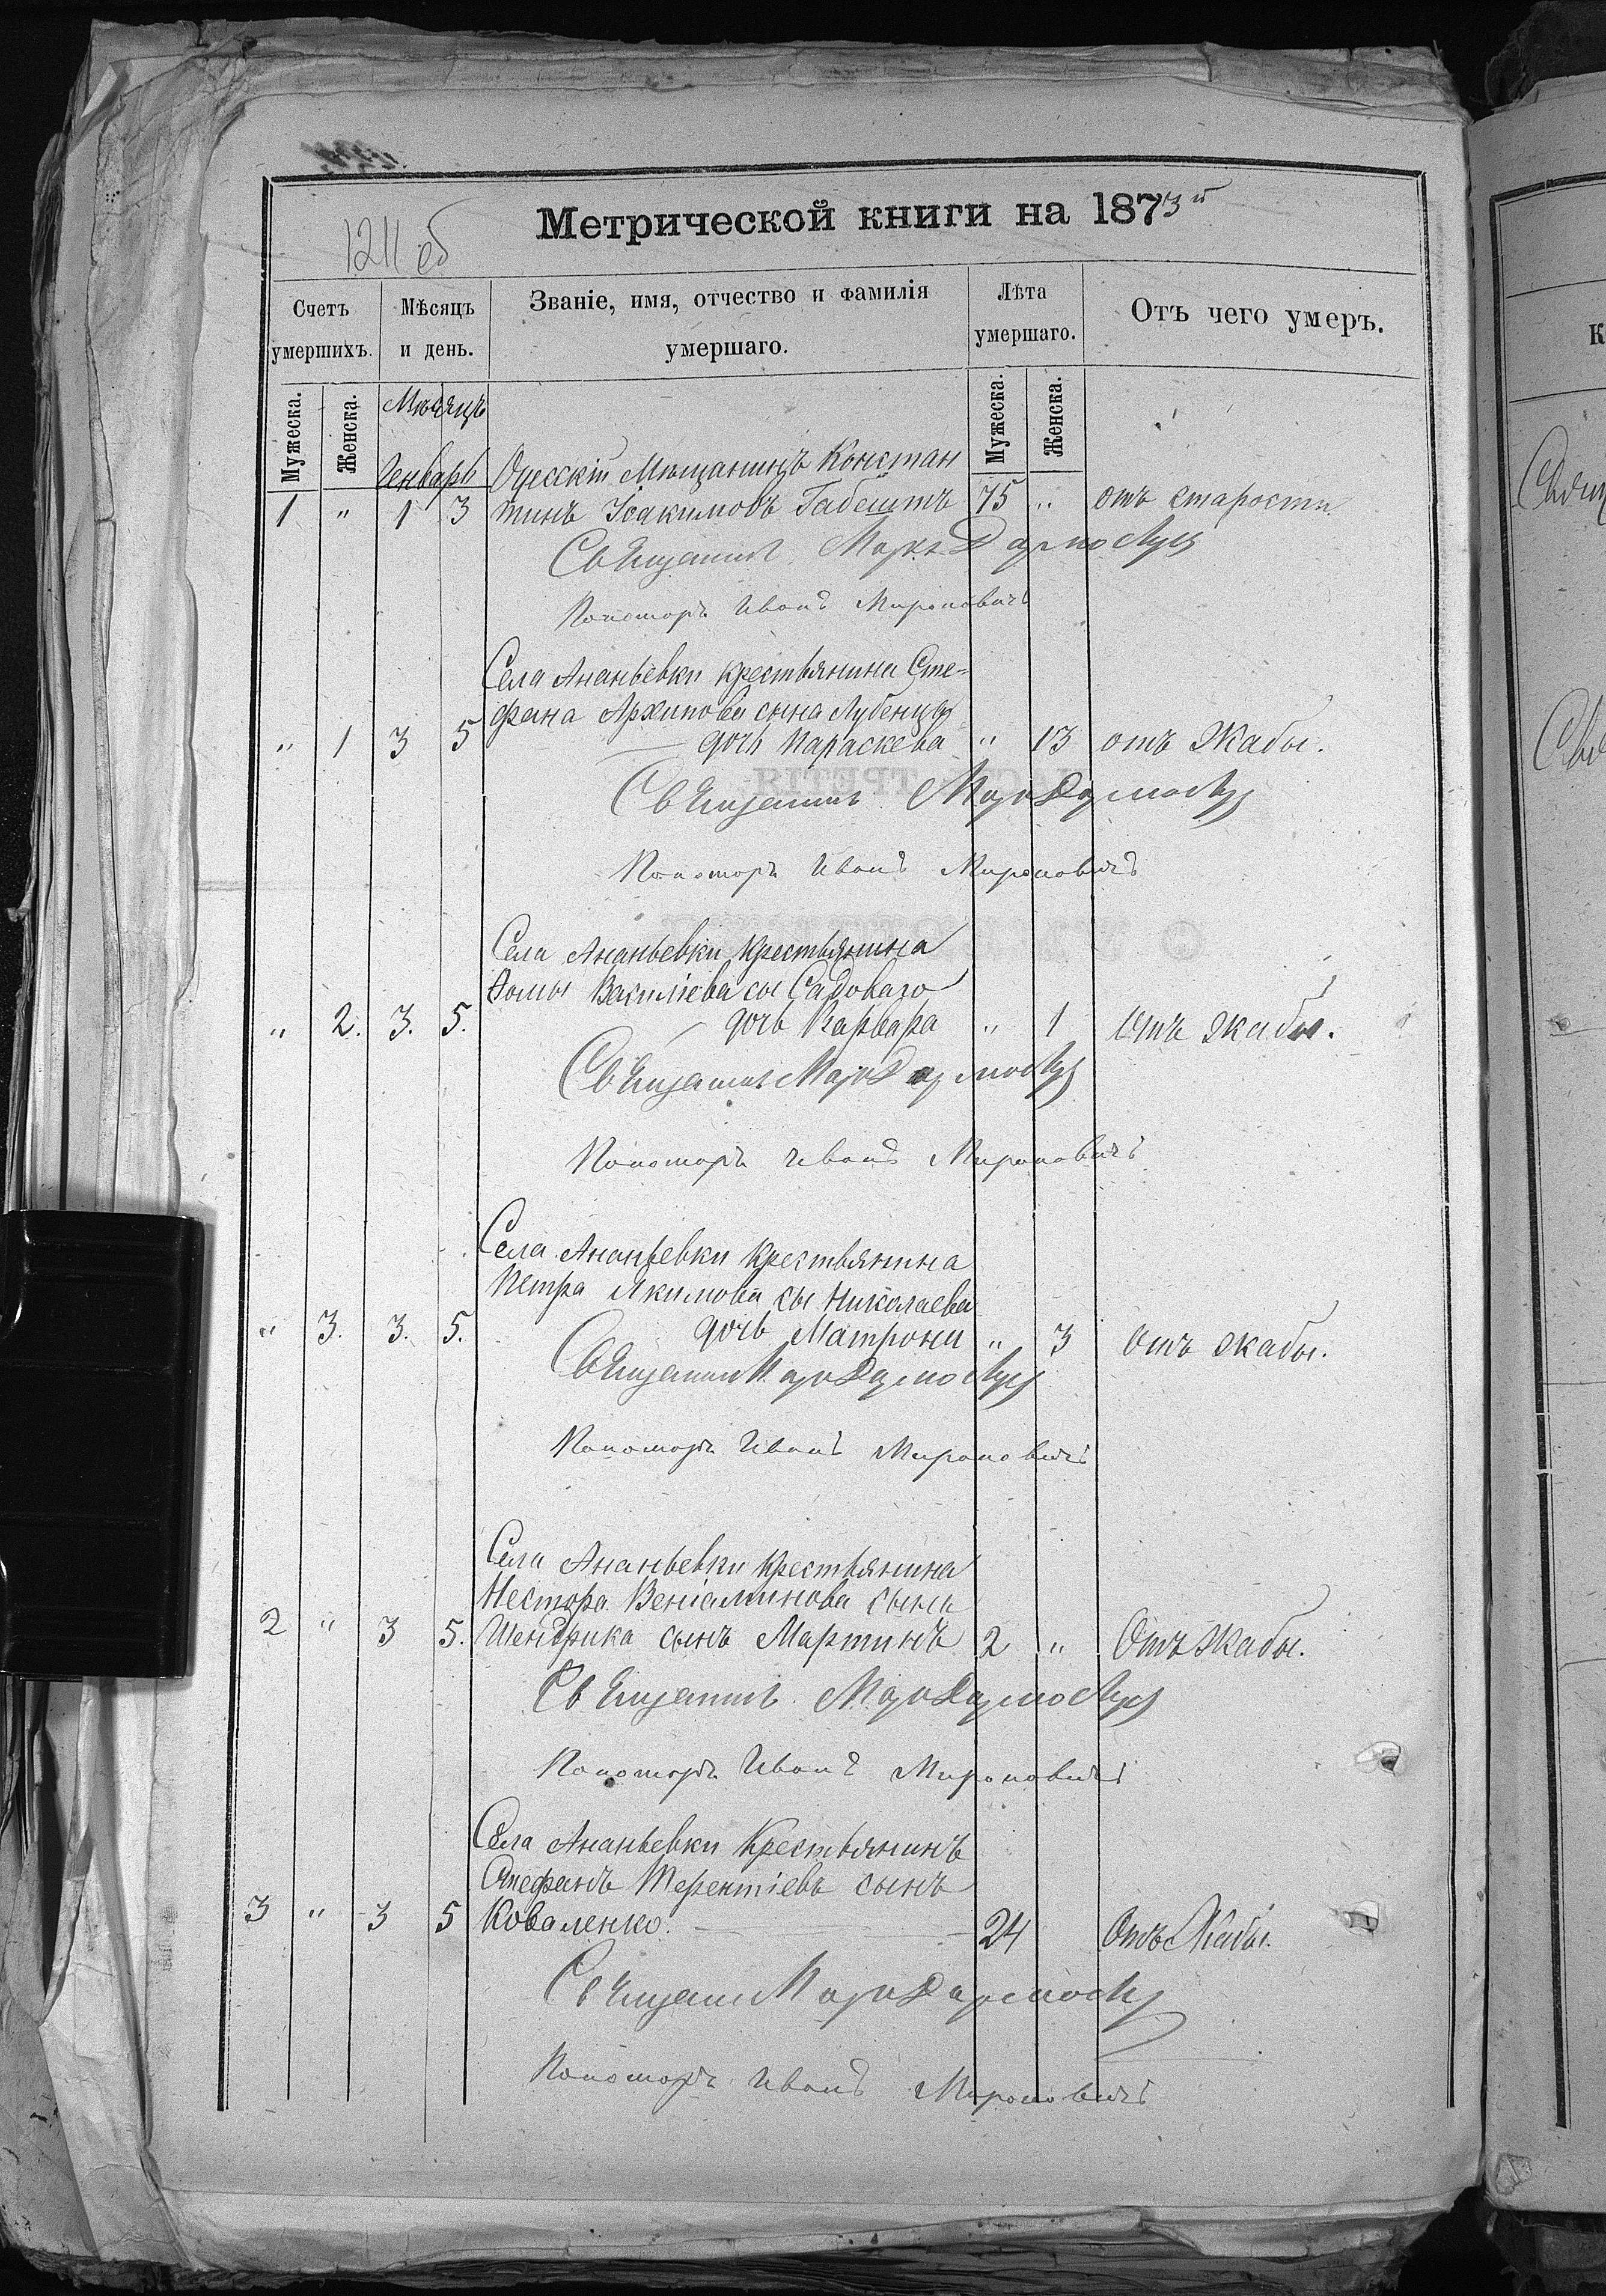 Метрической книги на 1873й
1211 об
Счетъ умершихъ.
Мѣсяцъ и день.
Званіе, имя, отчество и фамилія умершаго.
Лѣта умершаго.
Отъ чего умеръ.
Мужеска.
Женска.
Мужеска.
Женска.
Мѣсяцъ
Генварь
Одесскій Мѣщанинъ Констан
1 " 1 3 тинъ Іоакимовъ Габештъ 75 " отъ старости
Священникъ Маркъ
Пономарь Иванъ Мироновичъ
Села Ананьевки крестьянина Сте-
фана Архипова сына Лубенца
" 1 3 5 дочь Параскева " 13 отъ Жабы.
Священникъ
Пономарь Иванъ Мироновичъ
Села Ананьевки крестьянина
Ѳомы Василіева сы Садоваго
" 2. 3. 5. дочь Варвара " 1 Отъ жабы.
Священникъ
Пономарь Иванъ Мироновичъ
Села Ананьевки крестьянина
Петра Якимова сы Николаева
" 3. 3. 5. дочь Матрона " 3 Отъ жабы.
Священникъ
Пономарь Иванъ Мироновичъ
Села Ананьевки крестьянина
Нестора Веніаминова сына
2 " 3 5. Шендрика сынъ Мартинъ 2 " Отъ Жабы.
Священникъ
Пономарь Иванъ Мироновичъ
Села Ананьевки Крестьянинъ
Стефанъ Терентіевъ сынъ
3 " 3 5 Коваленко. 24 Отъ Жабы.
Священникъ
Пономарь Иванъ Мироновичъ